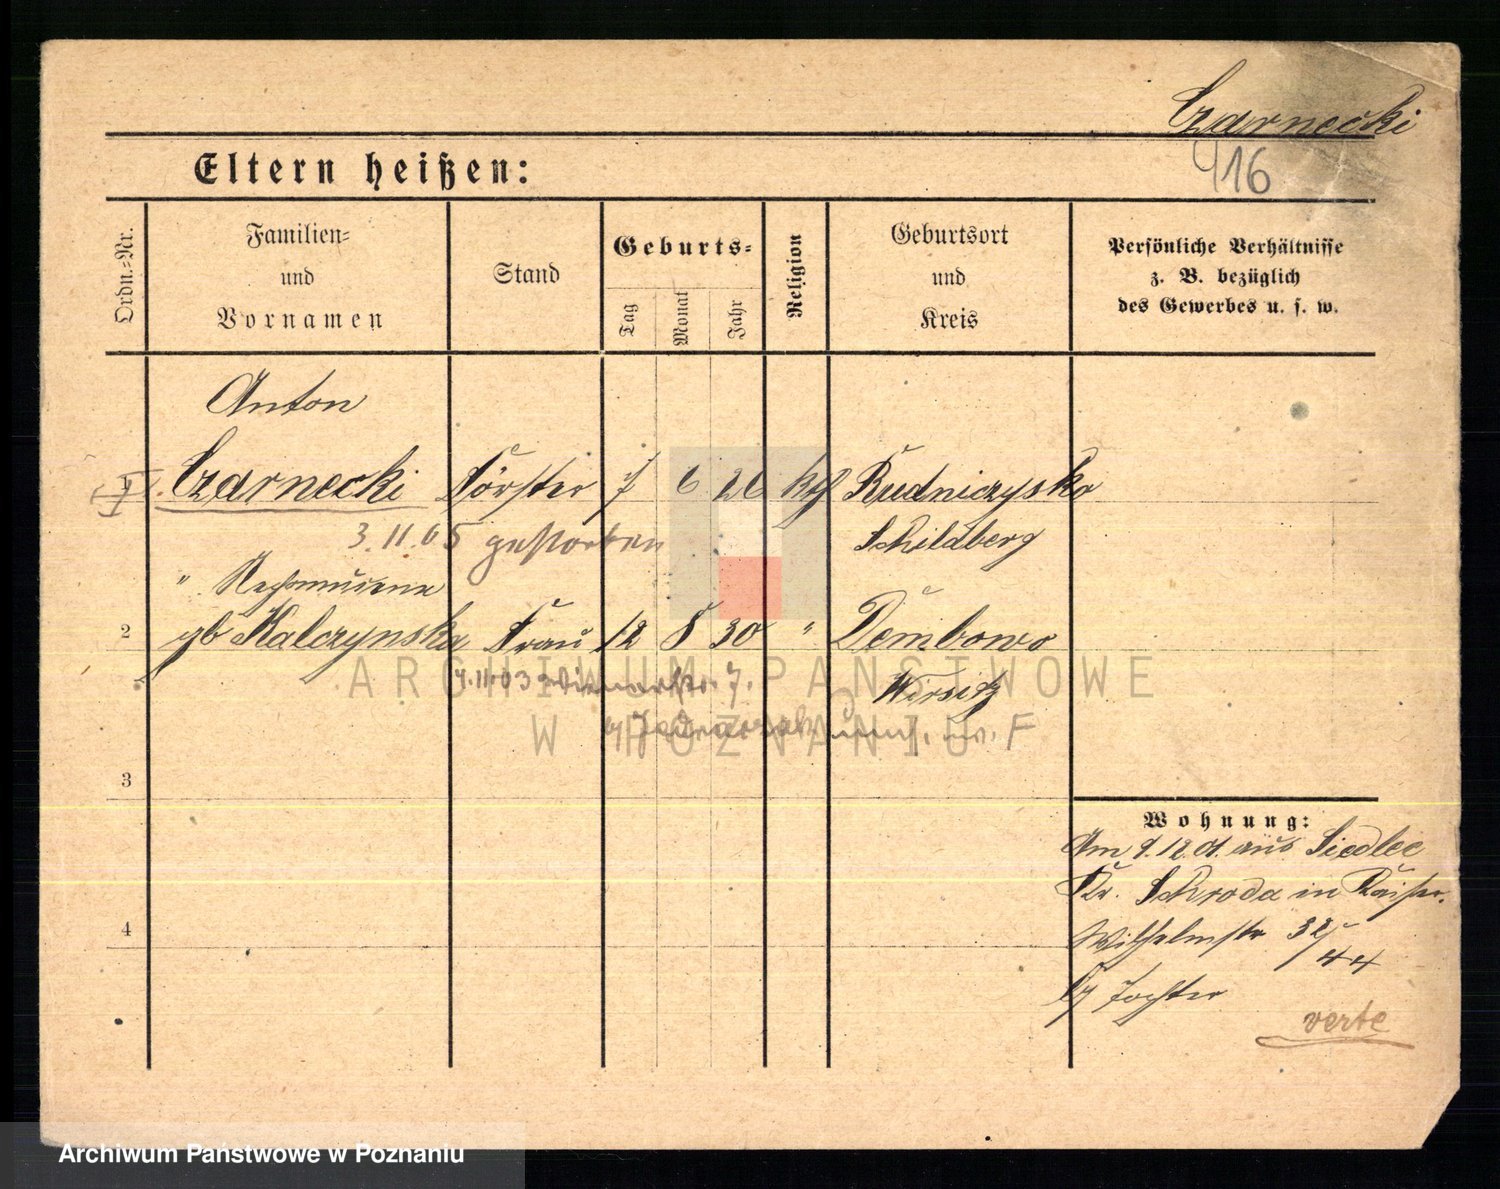 Czarnecki
Eltern heißen:
916
Ordn.-Nr.
Familien-
und
Vornamen
Stand
Geburts-
Tag
Monat
Jahr
Religion
Geburtsort
und
Kreis
Persönliche Verhältnisse
z. B. bezüglich
des Gewerbes u. s. w.
Anton
1 Czarnecki Förster 7 6 26 kth Rudniczysko
3.11.05 gestorben Schildberg
"
2 gb Kalczynska Frau 12 8 30 " Dembowo
4.11.03 Wirsitz
ARCHIWUM PAŃSTWOWE
W POZNANIU
3
Wohnung:
Am 9.12.01. aus Siedlec
Kr. Schroda in Kaiser.
4
Wilhelmstr 32/
44
Tochter
verte
Archiwum Państwowe w Poznaniu